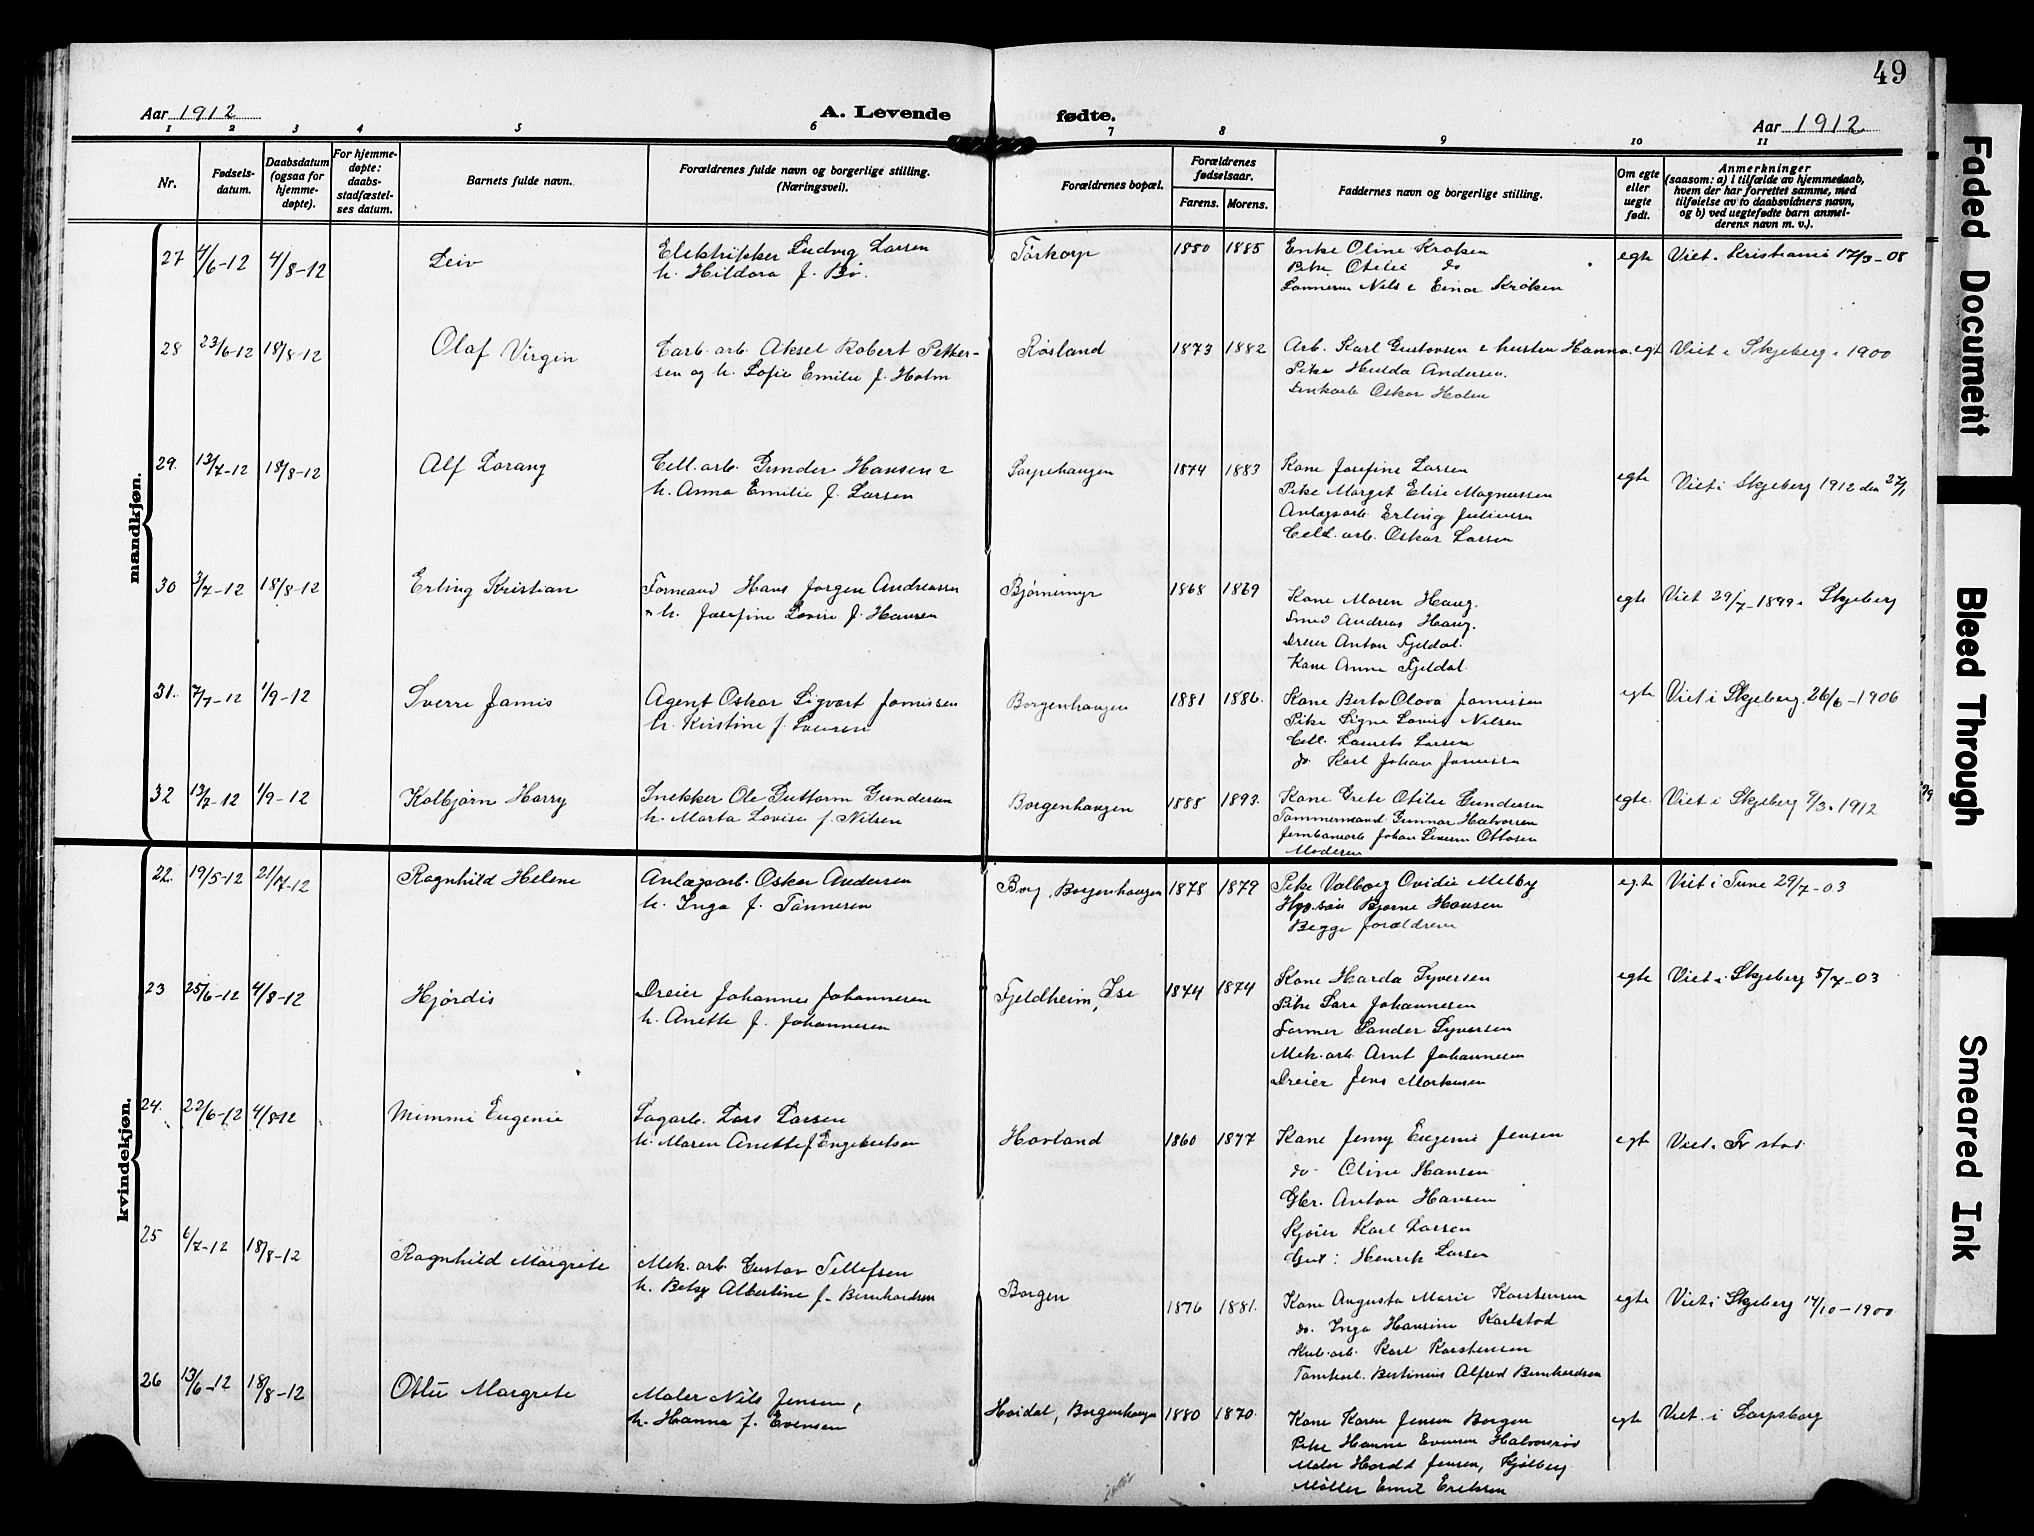 49
Aar 1912
A. Levende fødte.
Aar 1912
1 2 3 4 5 6 7 8 9 10 11
Nr.
Fødsels-
datum.
Daabsdatum
(ogsaa for
hjemme-
døpte).
For hjemme-
døpte:
daabs-
stadfæstel-
ses datum.
Barnets fulde navn.
Forældrenes fulde navn og borgerlige stilling.
(Næringsvei).
Forældrenes bopæl.
Forældrenes
fødselsaar.
Farens. Morens.
Faddernes navn og borgerlige stilling.
Om egte
eller
uegte
født.
Anmerkninger
(saasom: a) i tilfælde av hjemmedaab,
hvem der har forrettet samme, med
tilføielse av to daabsvidners navn,
og b) ved uegtefødte barn anmel-
derens navn m. v.).
mandkjøn.
27 4/6-12 4/8-12 Leiv
Elektrikker Ludvig Larsen
h. Hildora f. Bø.
Torkorp 1880 1885
Enke Oline Kroken
Pike Otilie do
Sønnerne Nils & Einar Krøken
egte Viet i Kristiania 17/3-08
28 23/6-12 18/8-12 Olaf Virgin
Carb. arb. Aksel Robert Petter-
sen og h. Sofie Emilie f. Holm
Røsland 1873 1882
Arb. Karl Gustavsen & hustru Hanna
Pike Hulda Andersen.
Oskar Holm
egt Viet i Skjeberg i 1900
29. 13/7-12 18/8-12 Alf Lorang
Cell. arb. Gunder Hansen &
h. Anna Emilie f. Larsen
Sorpehaugen 1874 1883
Kone Josefine Larsen
Pike Margit Elise Magnussen
Anlægsarb. Erling Juliusen
Cell. arb. Oskar Larsen
egte Viet i Skjeberg 1912 den 27/1
30 3/7-12 18/8-12 Erling Kristian
Formand Hans Jorgen Andreassen
h. Josefine Lovise f. Hansen
Bjørnemyr 1868 1869
Kone Maren Haug.
Smed Andreas Haug.
Dreier Anton Fjeldal.
Kone Anna Fjeldal.
egte Viet 29/7-1899 i Skjeberg
31. 7/7-12 1/9-12 Sverre Jamis
Agent Oskar Sigvart Jamissen
h. Kristine f.
Borgenhaugen 1881 1886.
Kone Berta Olava Jamissen
Pike Signe Lovise Nilsen
Cell. Laurets Larsen
do Karl Johan Jamissen
egte Viet i Skjeberg. 26/6-1906
32 13/7-12 1/9-12 Kolbjørn Harry
Snekker Ole Guttorm Gundersen
h. Marta Lovise f. Nilsen
Borgenhaugen 1888 1893.
Kone Grete Otilie Gundersen
Tømmermand Gunnar Halvorsen
Jernbanearb Johan Severin Ottosen
Moderen
egte. Viet i Skjeberg 9/3-1912
kvindekjøn.
22. 19/5-12 21/7-12 Ragnhild Helene
Anlægsarb. Oskar Andersen
h. Inga f. Tønnesen
Borg, Borgenhaugen 1878 1879
Pike Valborg Ovidie Melby
Bjarne Hansen
Begge forældrene
egte Viet i Tune 29/7-03
23 25/6-12 4/8-12 Hjørdis
Dreier Johannes Johannesen
h. Anette f. Johannesen
Fjeldheim, Ise 1874 1874
Kone Harda Syversen
Pike Sara Johannesen
Former Sander Syversen
Mek. arb. Arnt Johannesen
Dreier Jens Markusen
egte Viet i Skjeberg 5/7-03
24. 22/6-12 4/8-12 Mimmi Eugenie
Sagarb. Lars Larsen
h. Maren Anette f. Engebretsen
Havland 1860 1877
Kone Jenny Eugenie Jensen
do Oline Hansen
Gbr. Anton Hansen
Kjører Karl Larsen
Henrik Larsen
egte Viet i Fr stad
25 6/7-12 18/8-12 Ragnhild Margrete
Mek. arb. Gustav Tellefsen
h. Betsy Albertine f. Bernhardsen
Borgen 1876 1881.
Kone Augusta Marie Karstensen
do. Inga Hansine Karlstad
arb. Karl Karstensen
Tomtearb. Bertinius Alfred Bernhardsen
egte Viet i Skjeberg 14/10-1900
26 13/6-12 18/8-12 Ottie Margrete
Maler Nils Jensen,
h. Hanna f. Evensen
Hvidal, Borgenhaugen 1880 1870.
Kone Karen Jensen Borgen
Pike Hanne Evensen Halvorsrød
Maler Harald Jensen, Kjølberg
Møller Emil Eriksen
egte Viet i Sarpsborg
Faded Document
Bleed Through
Smeared Ink